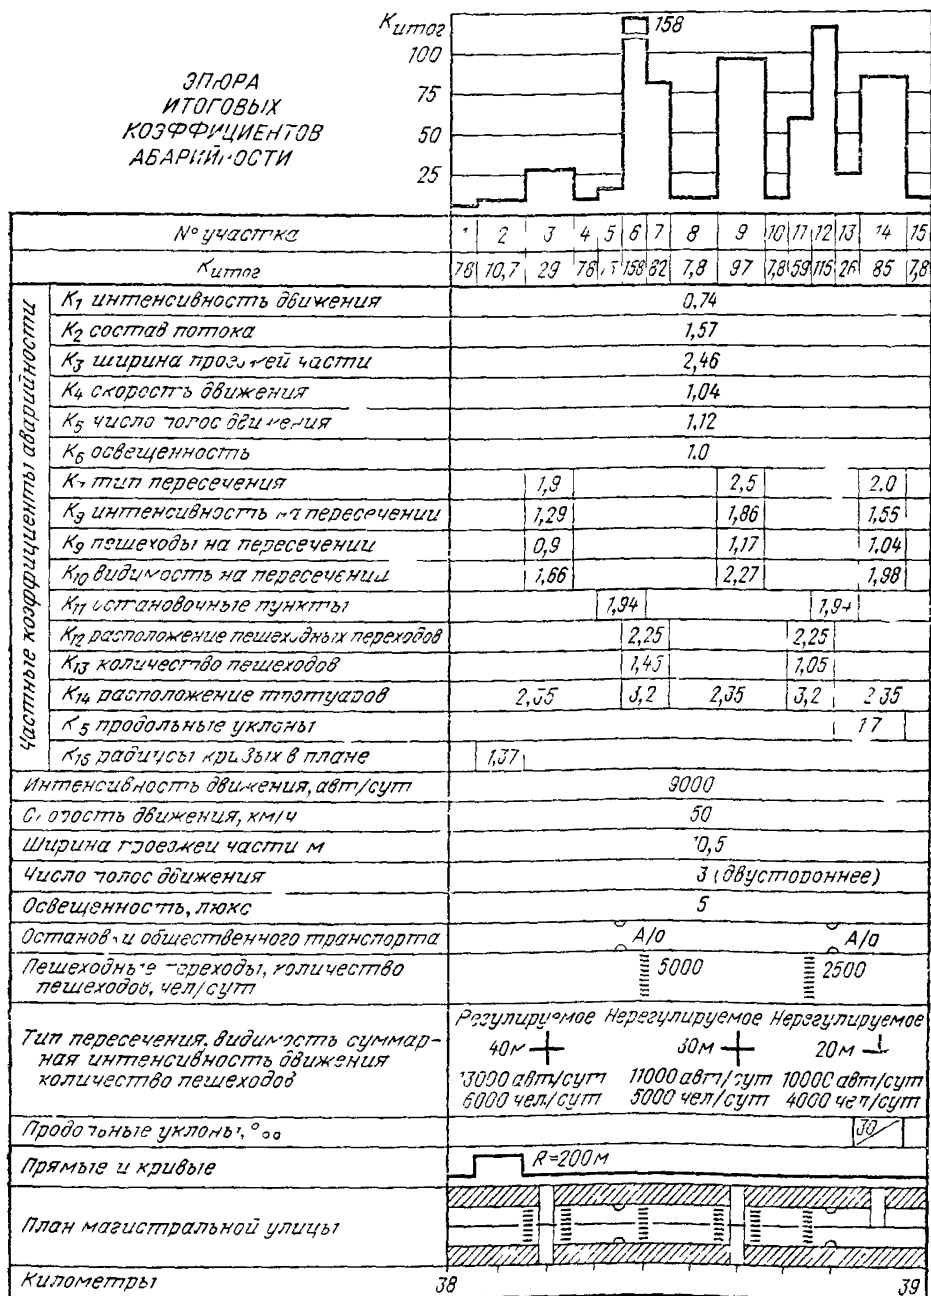 Kитог
158
100
75
50
25
ЭПЮРА
ИТОГОВЫХ
КОЭФФИЦИЕНТОВ
АВАРИЙНОСТИ
N° участка 1 2 3 4 5 6 7 8 9 10 11 12 13 14 15
Kитог 78 10,7 29 78 158 82 7,8 97 7,8 59 115 26 85 7,8
Частные коэффициенты аварийности
K1 интенсивность движения 0,74
K2 состав потока 1,57
K3 ширина проезжей части 2,46
K4 скорость движения 1,04
K5 число полос движения 1,12
K6 освещенность 1.0
K7 тип пересечения 1,9 2,5 2.0
K8 интенсивность на пересечении 1,29 1,86 1,55
K9 пешеходы на пересечении 0,9 1,17 1.04
K10 видимость на пересечении 1,66 2,27 1,98
K11 остановочные пункты 1,94 1,94
K12 расположение пешеходных переходов 2,25 2,25
K13 количество пешеходов 1,45 1,05
K14 расположение тротуаров 2,35 3,2 2,35 3,2 2 35
K 5 продольные уклоны 1 7
K16 радиусы кривых в плане 1,37
Интенсивность движения, авт/сут 9000
Скорость движения, км/ч 50
Ширина проезжей части м 10,5
Число полос движения 3 (двустороннее)
Освещенность, люкс 5
Остановки общественного транспорта А/о А/о
Пешеходные переходы, количество
пешеходов, чел/сут 5000 2500
Тип пересечения, видимость суммар-
ная интенсивность движения
количество пешеходов
Регулируемое Нерегулируемое Нерегулируемое
40м 30м 20м
13000 авт/сут 11000 авт/сут 10000 авт/сут
6000 чел/сут 5000 чел/сут 4000 чел/сут
Продольные уклоны, °оо 30
Прямые и кривые R=200м
План магистральной улицы
Километры 38 39